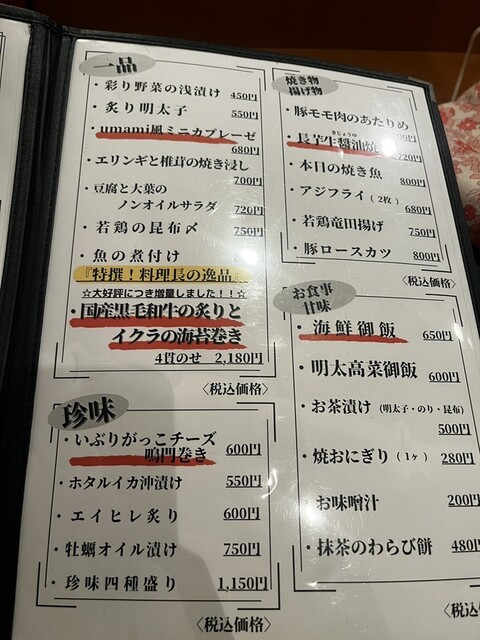 一品
・彩り野菜の浅漬け 450円
・炙り明太子 550円
・umami風ミニカプレーゼ
680円
・エリンギと椎茸の焼き浸し
700円
・豆腐と大葉の
ノンオイルサラダ 720円
・若鶏の昆布〆 750円
・魚の煮付け
『特撰！料理長の逸品』
☆大好評につき増量しました！！☆
・国産黒毛和牛の炙りと
イクラの海苔巻き
4貫のせ 2,180円
〈税込価格〉
珍味
・いぶりがっこチーズ
鳴門巻き 600円
・ホタルイカ沖漬け 550円
・エイヒレ炙り 600円
・牡蠣オイル漬け 750円
・珍味四種盛り 1,150円
〈税込価格〉
焼き物
揚げ物
・豚モモ肉のあたりめ
きじょうゆ
・長芋生醤油焼 720円
・本日の焼き魚 800円
・アジフライ（2枚） 680円
・若鶏竜田揚げ 750円
・豚ロースカツ 800円
〈税込価格〉
お食事
甘味
・海鮮御飯 650円
・明太高菜御飯 600円
・お茶漬け（明太子・のり・昆布）
500円
・焼おにぎり（1ヶ） 280円
お味噌汁 200円
・抹茶のわらび餅 480円
〈税込価